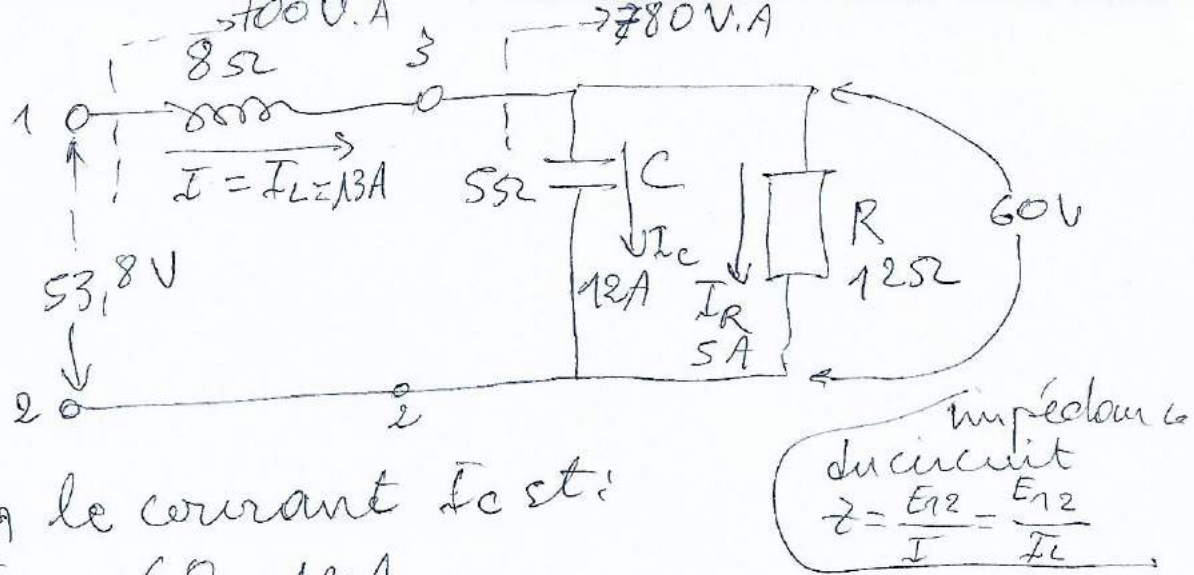 700 V.A
780 V.A
8Ω
3
1
I = I_L = 13A
5Ω
C
I_C
12A
I_R
5A
R
12Ω
60V
53,8V
2
2
impédance
du circuit
Z = E12/I = E12/IL
le courant Ic est: